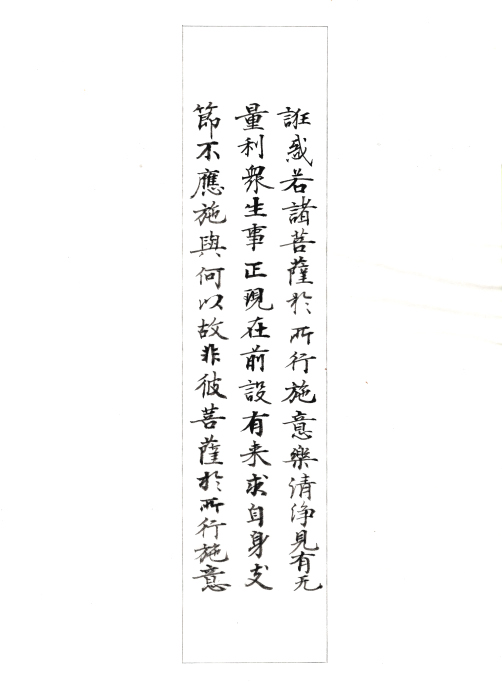 誑惑若諸菩薩於所行施意樂清淨見有无
量利衆生事正現在前設有来求自身支
節不應施與何以故非彼菩薩於所行施意